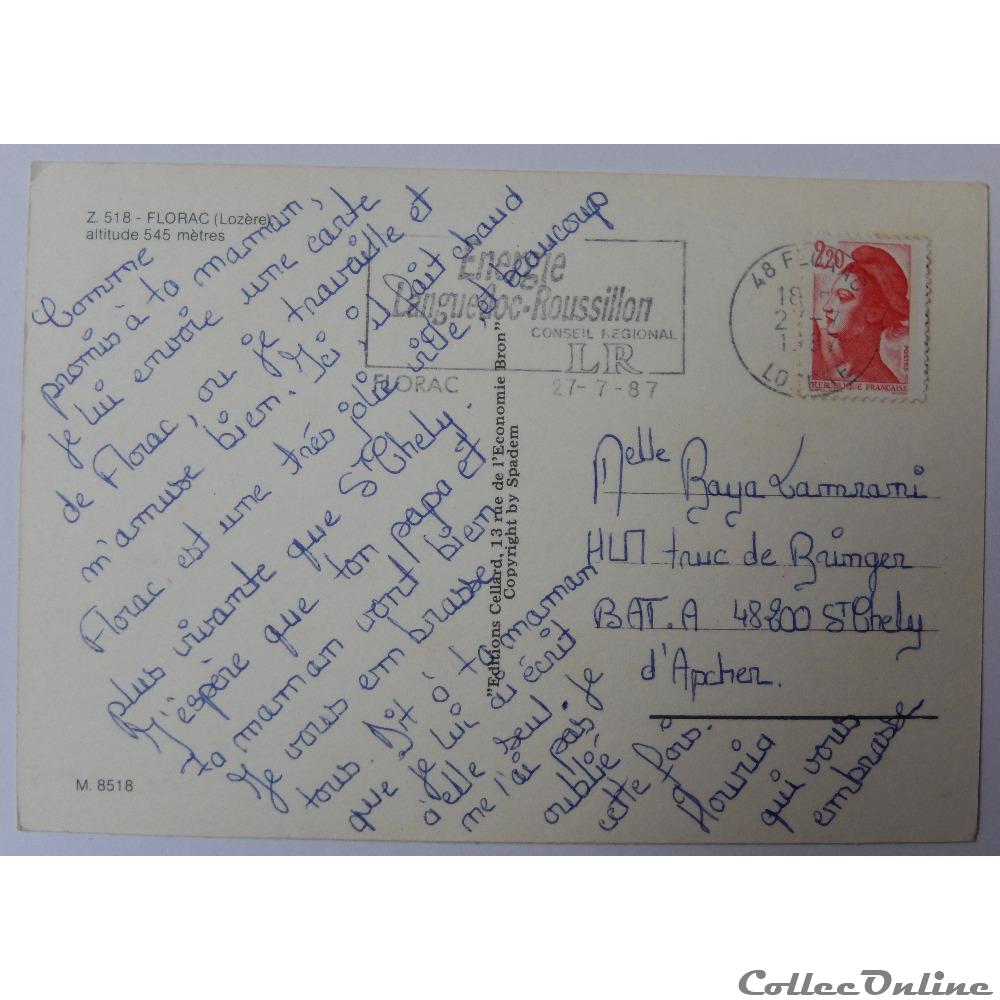 Z. 518 - FLORAC (Lozère)
altitude 545 mètres
Comme
promis à ta maman,
je lui envoie une carte
de Florac, ou je travaille et
m'amuse bien. Ici il fait chaud
Florac est une très jolie ville, et beaucoup
plus vivante que St Chely.
J'espère que ton papa et
ta maman vont bien
Je vous embrasse
tous. Dit à ta maman
que je lui ai écrit
à elle seul. Je
ne l'ai pas
oublié
cette fois.
Houria
qui vous
embrasse
M. 8518
"Editions Cellard, 13 rue de l'Economie Bron"
Copyright by Spadem
Energie
Languedoc-Roussillon
CONSEIL REGIONAL
LR
FLORAC 27-7-87
48 FLORAC
18 H
1987
2,20
POSTES
REPUBLIQUE FRANCAISE
Melle Raya Lamrani
HLM truc de Bringer
BAT. A 48200 St Chely
d'Apcher.
CollecOnline